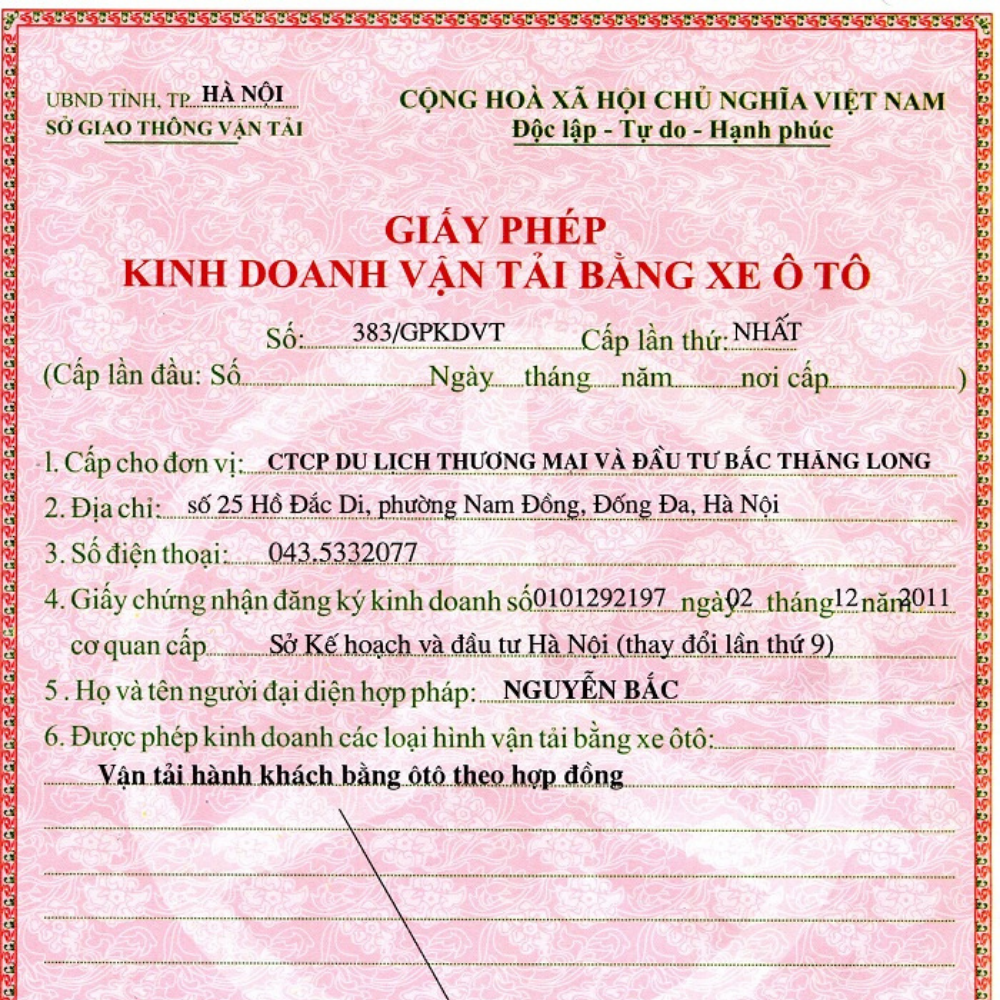 UBND TỈNH, TP HÀ NỘI
SỞ GIAO THÔNG VẬN TẢI
CỘNG HOÀ XÃ HỘI CHỦ NGHĨA VIỆT NAM
Độc lập - Tự do - Hạnh phúc
GIẤY PHÉP
KINH DOANH VẬN TẢI BẰNG XE Ô TÔ
Số: 383/GPKDVT Cấp lần thứ: NHẤT
(Cấp lần đầu: Số Ngày tháng năm nơi cấp )
1. Cấp cho đơn vị: CTCP DU LỊCH THƯƠNG MẠI VÀ ĐẦU TƯ BẮC THĂNG LONG
2. Địa chỉ: số 25 Hồ Đắc Di, phường Nam Đồng, Đống Đa, Hà Nội
3. Số điện thoại: 043.5332077
4. Giấy chứng nhận đăng ký kinh doanh số 0101292197 ngày 02 tháng 12 năm 2011
cơ quan cấp Sở Kế hoạch và đầu tư Hà Nội (thay đổi lần thứ 9)
5 . Họ và tên người đại diện hợp pháp: NGUYỄN BẮC
6. Được phép kinh doanh các loại hình vận tải bằng xe ôtô:
Vận tải hành khách bằng ôtô theo hợp đồng